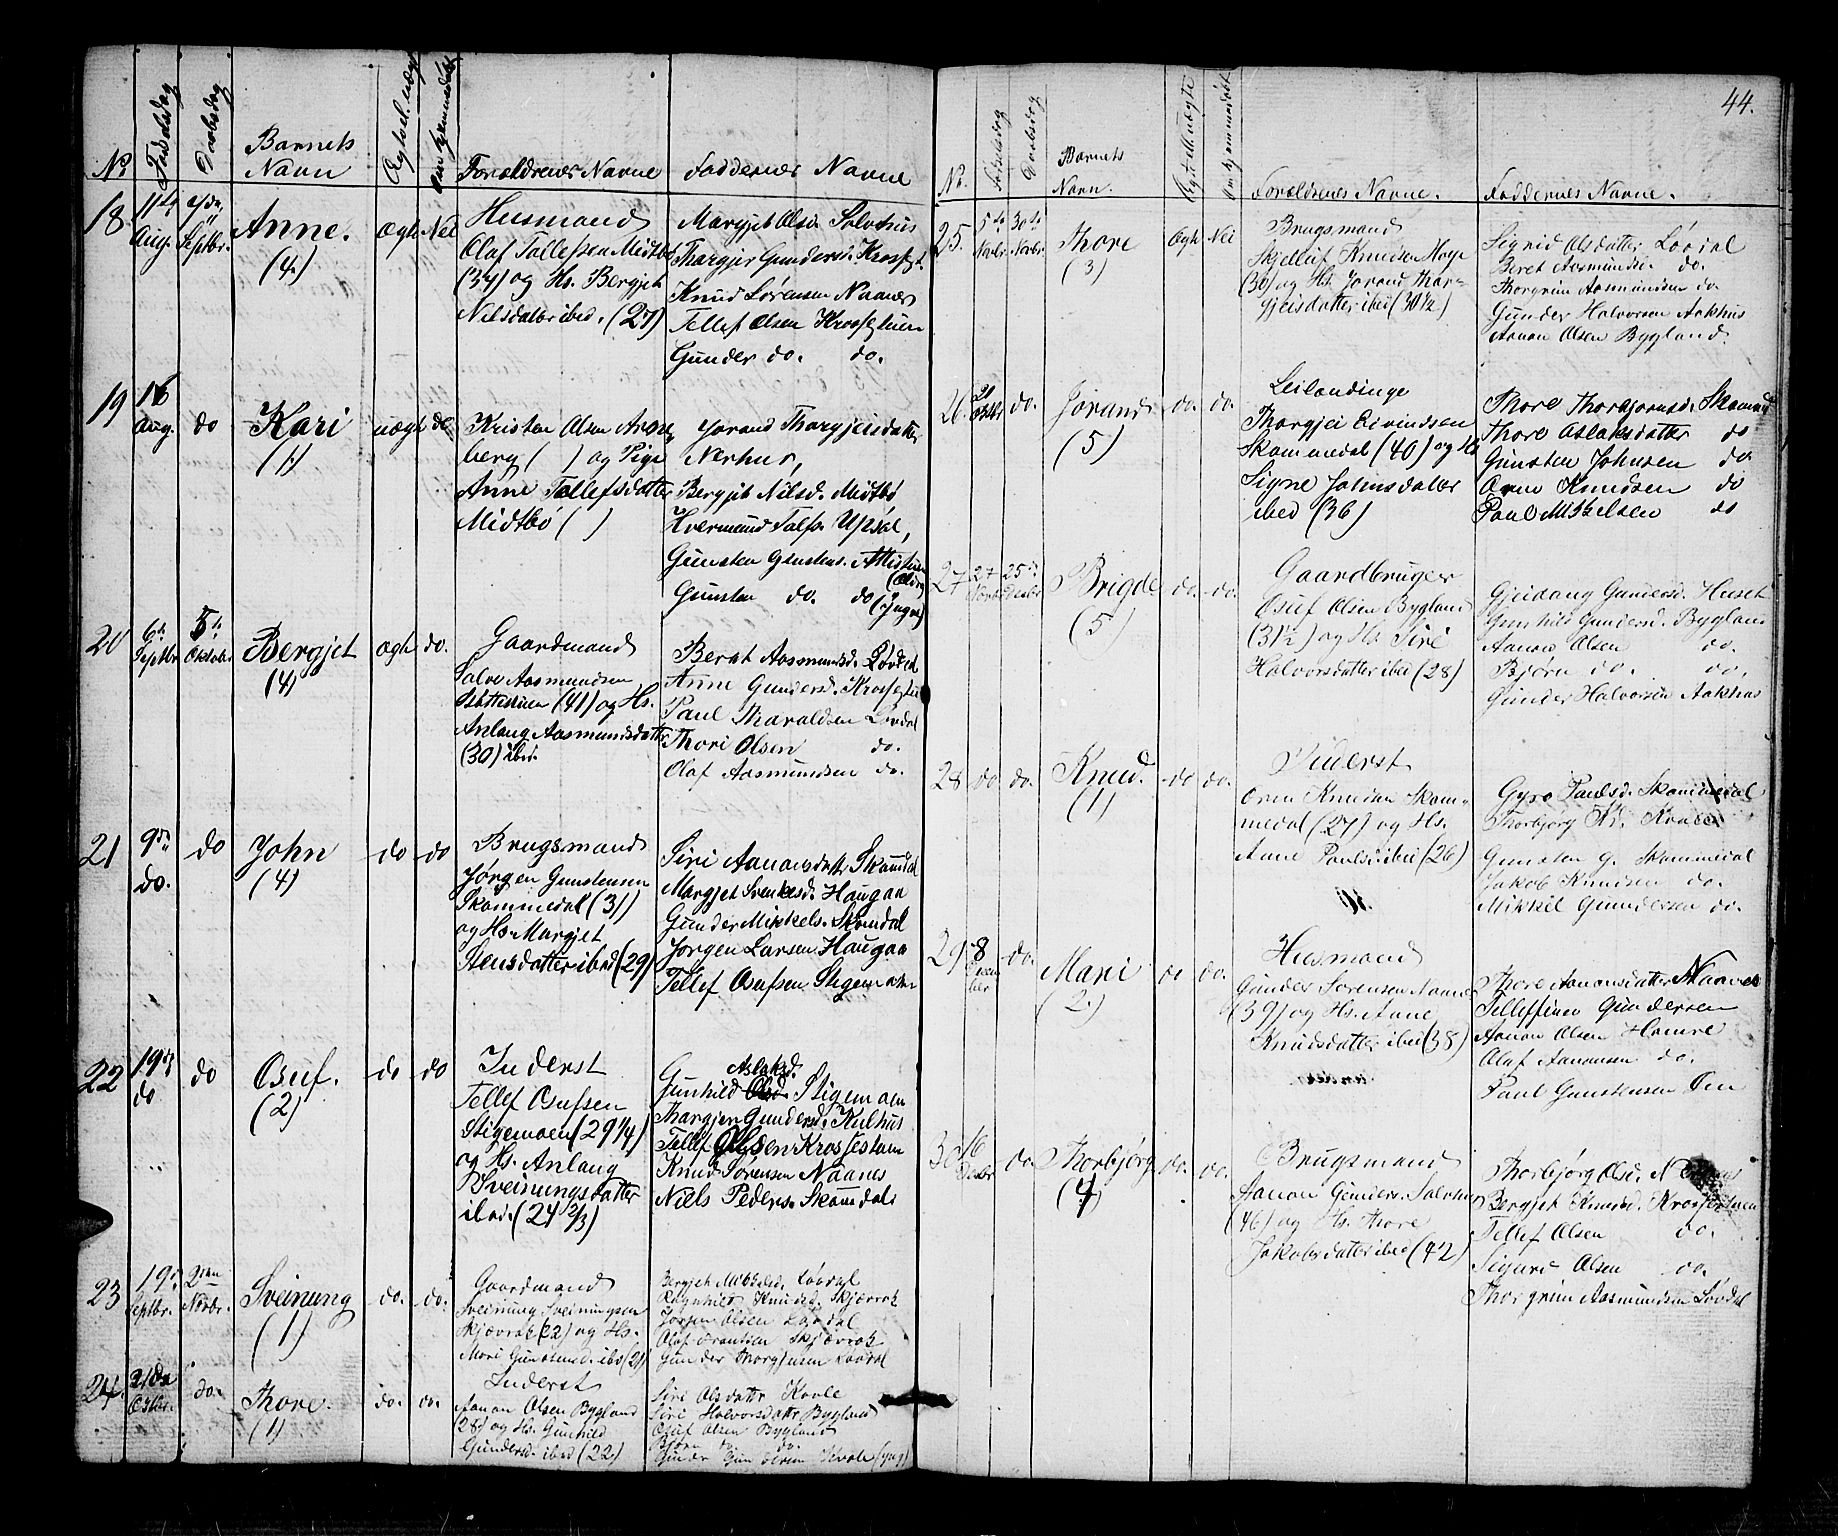 44.
No
Fødselsdag
Daabsdag
Barnets
Navn
Forældrenes Navne
Faddernes Navne
18
11te
Augr.
7de
Septbr.
Anne.
(4)
Ægte
Nei
Husmand
Olaf Tallefsen Midtbø
(34) og Hs. Bergjet
Nilsdatter ibid. (27)
Margjet Olsd. Salvhus
Thargjer Gundersd. Krossest.
Knud Sørensen Naanes
Tellef Olsen Krossestuen
Gunder do. do.
19
16
Aug.
do
Kari
(1)
uægte
do
Kristen Olsen Arne-
berg ( ) og Pige
Anne Tellefsdatter
Midtbø ( )
Jorand Thargjeisdatter
Nerhus,
Bergjet Nilsd. Midtbø
Gunsten Gunstens.
Gunsten do. do (Yngre)
20
6te
Septbr.
5te
Oktobr.
Bergjet
(4)
ægte
do.
Gaardmand
Salve Aasmundsen
(41) og Hs.
Anlaug Aasmundsdatter
(30) ibid.
Berat Aasmundsd. Løvdal
Anne Gundersd. Krossestu
Paul Tharaldsen Løvdal
Thori Olsen do.
Olaf Aasmundsen do.
21
9de
do.
do
John
(4)
do
do
Brugsmand
Jørgen Gunstensen
Skammedal (31)
og Hs. Margjet
Stensdatter ibid (29)
Siri Aanonsdatter Skamdal
Margjet Svenkesd. Haugaa
Gunder Mikkels. Skamdal
Jørgen Larsen Haugaa
Tellef Osufsen Stigemoen
22
19de
do
do
Osuf.
(2)
do
do
Inderst
Tellef Osufsen
Stigemoen (29 1/4)
og Hs. Anlaug
Sveinungsdatter
ibid. (24 2/3)
Aslaksd.
Gunhild Stigemoen
Thargjer Gundersd. Kulhus
Tellef Olsen Krossestuen
Knud Sørensen Naanes
Niels Peders. Skamdal
23
19de
Septbr.
2den
Novbr.
Sveinung
(1)
do.
do.
Gaardmand
Sveinung Sveinungsen
Skjævrak (22) og Hs.
Mari Gundersd. ibid (21)
Bergjet Mikkelsd. Løvdal
Ragnhild Knudsd. Skjævrak
Jørgen Olsen Løvdal
Olaf Skjævrak
Gunder Thorgjusen Løvdal
24.
21de
Octbr.
do.
Thore.
(1)
do.
do.
Inderst
Aanon Olsen Bygland
(28) og Hs. Gunhild
Gundersd. ibid (22)
Siri Olsdatter Kvale
Siri Halvorsdatter Bygland
Osuf Olsen Bygland
Bjørn do. do.
Gunder Gundersen Kvale (yng)
No.
Fødselsdag
Daabsdag
Barnets
Navn.
Forældrenes Navne.
Faddernes Navne.
25.
5te
Novbr
30te
Novbr.
Thore
(3)
Ægte
Nei
Brugsmand
Skjelluf Knudsen Moge
(30) og Hs. Jorand Thar-
gjeisdatter ibid (30 1/2)
Sigrid Olsdatter Løvdal
Beret Aasmundsd. do.
Thorgrim Aasmundsen do
Gunder Halvorsen Aakhus
Aanon Olsen Bygland.
26.
21
Oktbr
do.
Jorand
(5)
do.
do.
Leilændinge
Thargjei Eivindsen
Skammedal (40) og Hs
Signe Johnsdatter
ibid (36)
Thore Thorbjørnsd. Skammed
Thore Aslaksdatter do
Gunsten Johnsen do
Oven Knudsen do
Paul Mikkelsen do
27
27
Novbr
25de
Decbr
Brigde
(5)
do.
do.
Gaardbruger
Osuf Olsen Bygland
(31 1/2) og Hs. Siri
Halvorsdatter ibid (28)
Gjeidaug Gundersd. Huset
Gunhild Gundersd. Bygland
Aanon Olsen do.
Bjørn do. do.
Gunder Halvorsen Aakhus
28
do
do.
Knud.
(1)
do
do.
Inderst
Oven Knudsen Skam-
medal (27) og Hs.
Anne Paulsd. ibid (26)
Gyro Paulsd. Skammedal
Thorbjørg
Gunsten G. Skammedal
Jakob Knudsen do.
Mikkel Gundersen do.
29
8
Decem
ber
do.
Mari
(2)
do
do.
Husmand
Gunder Sørensen Naanes
(39) og Hs. Anne
Knudsdatter ibid (38)
Thore Aanonsdatter Naanes
Gundersen
Aanon Olsen Hamre
Olaf Aanonsen do.
Paul Gunstensen Oen
30
16
Decbr
do.
Thorbjørg
(4)
do.
do.
Brugsmand
Aanon Gunders. Salvhus
(46) og Hs. Thore
Jakobsdatter ibid (42)
Thorbjørg Olsd.
Bergjet Knudsd. Krossestuen
Tellef Olsen do.
Sigurd Olsen do.
Thorgrim Aasmundsen Løvdal